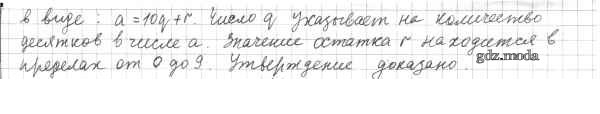 в виде: a = 10q + r. Число q указывает на количество
десятков в числе a. Значение остатка r находится в
пределах от 0 до 9. Утверждение доказано.
gdz.moda